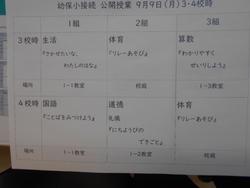 幼保小接続 公開授業 9月9日(月)3・4校時
1組 2組 3組
3校時 生活 体育 算数
『さかせたいな、 『リレーあそび』 『わかりやすく
わたしのはな』 せいりしよう』
場所 1-1教室 校庭 1-3教室
4校時 国語 道徳 体育
『ことばをみつけよう』 礼儀 『リレーあそび』
『にちようびの
できごと』
場所 1-1教室 1-2教室 校庭